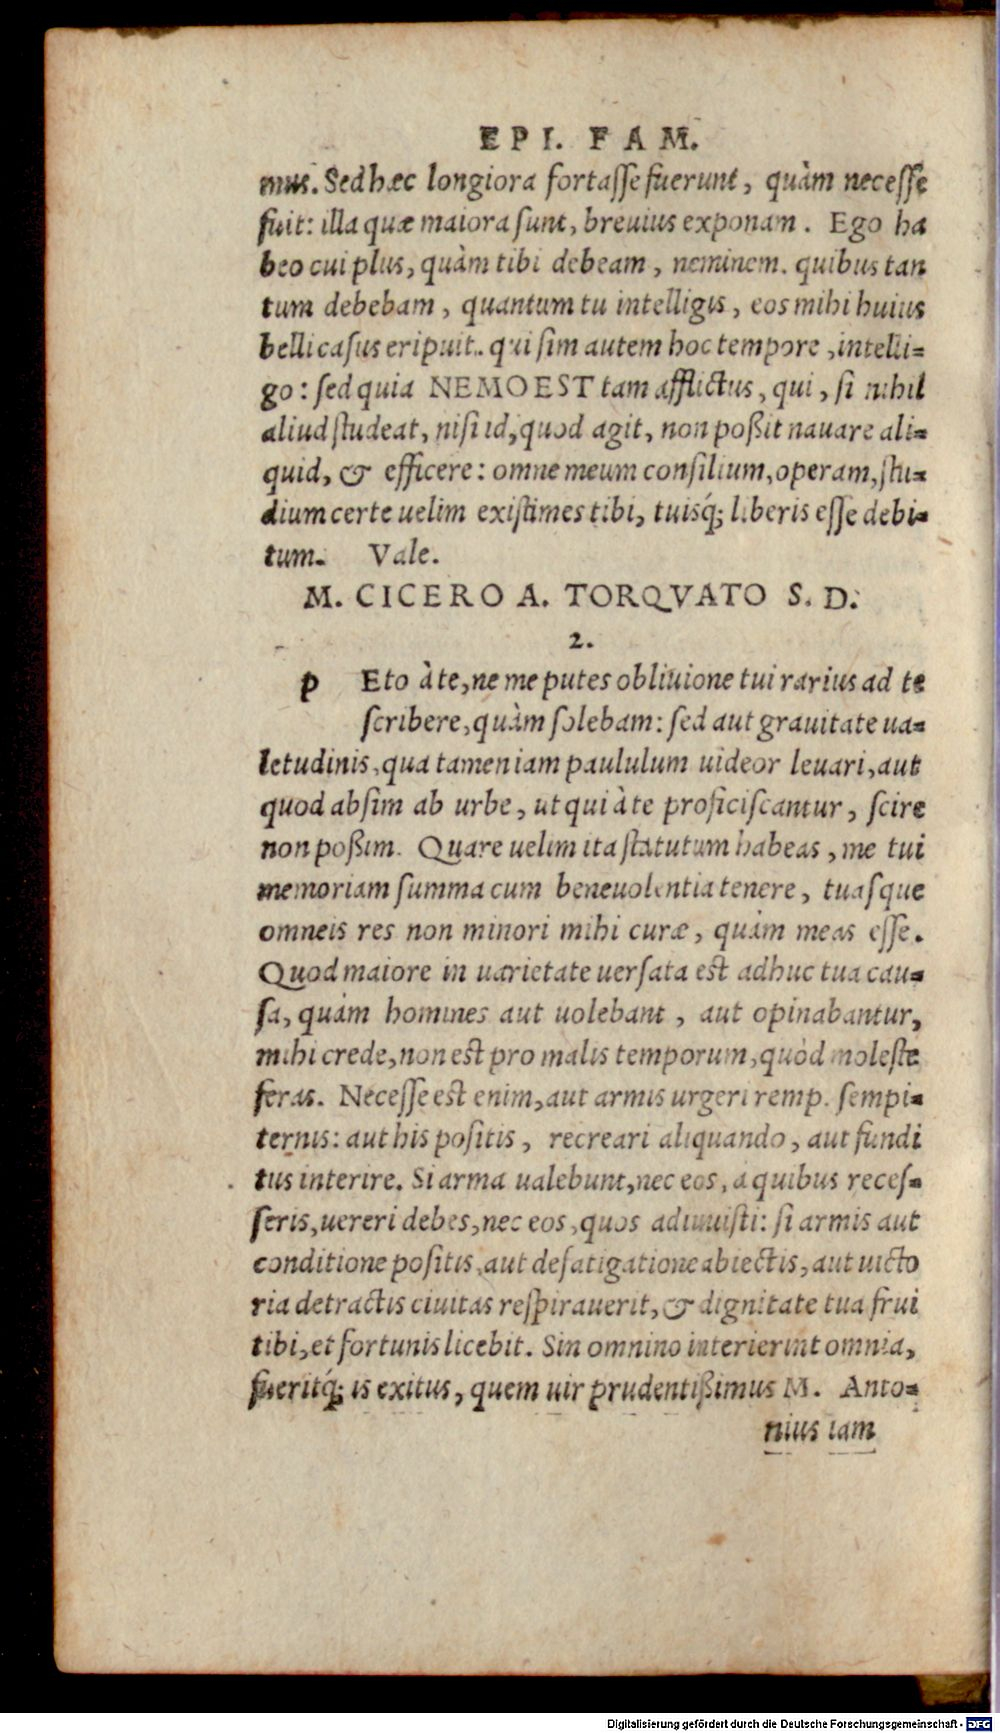 EPI. FAM.
mus. Sed hæc longiora fortasse fuerunt, quàm necesse
fuit: illa quæ maiora sunt, breuius exponam. Ego ha
beo cui plus, quàm tibi debeam, neminem. quibus tan
tum debebam, quantum tu intelligis, eos mihi huius
belli casus eripuit.. qui sim autem hoc tempore, intelli=
go: sed quia NEMO EST tam afflictus, qui, si nihil
aliud studeat, nisi id, quod agit, non poßit nauare ali=
quid, & efficere: omne meum consilium, operam, stu=
dium certe uelim existimes tibi, tuisq́; liberis esse debi=
tum. Vale.
M. CICERO A. TORQVATO S. D.
2.
p Eto à te, ne me putes obliuione tui rarius ad te
scribere, quàm solebam: sed aut grauitate ua=
letudinis, qua tamen iam paululum uideor leuari, aut
quod absim ab urbe, ut qui à te proficiscantur, scire
non poßim. Quare uelim ita statutum habeas, me tui
memoriam summa cum beneuolentia tenere, tuasque
omneis res non minori mihi curæ, quàm meas esse.
Quod maiore in uarietate uersata est adhuc tua cau=
sa, quàm homines aut uolebant, aut opinabantur,
mihi crede, non est pro malis temporum, quòd moleste
feras. Necesse est enim, aut armis urgeri remp. sempi=
ternis: aut his positis, recreari aliquando, aut fundi
tus interire. Si arma ualebunt, nec eos, a quibus reces=
seris, uereri debes, nec eos, quos adiuuisti: si armis aut
conditione positis, aut defatigatione abiectis, aut uicto
ria detractis ciuitas respirauerit, & dignitate tua frui
tibi, et fortunis licebit. Sin omnino interierint omnia,
fueritq́; is exitus, quem uir prudentißimus M. Anto=
nius iam
Digitalisierung gefördert durch die Deutsche Forschungsgemeinschaft - DFG